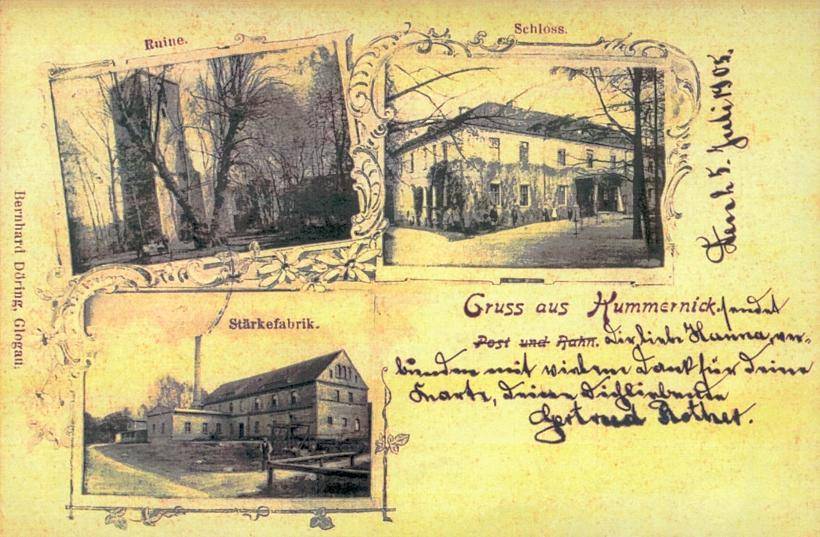 Ruine.
Schloss.
5. Juli 1905.
Bernhard Döring, Glogau.
Stärkefabrik.
Gruss aus Kummernick. sendet
Post und Bahn. Dir, liebe Hanna, ver-
bunden mit vielem Dank für Deine
Karte, Deine Dichliebende
Gertrud Rother.